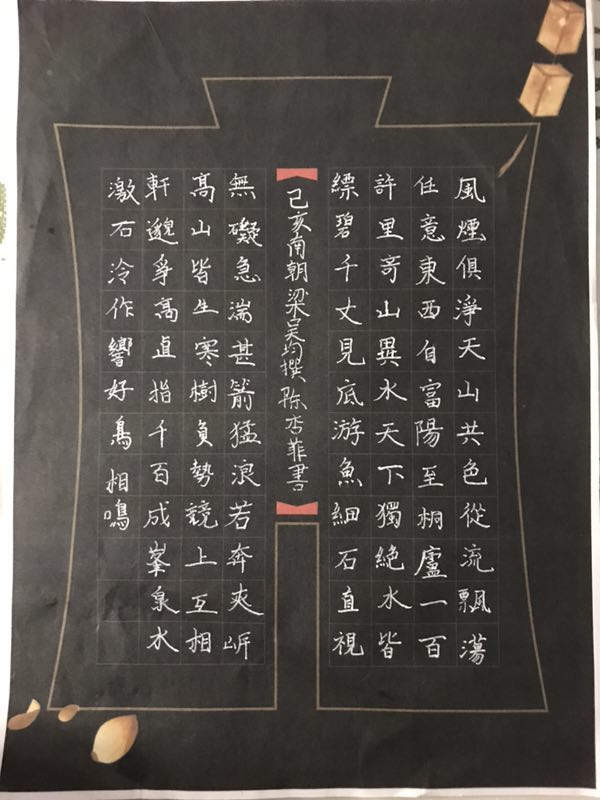 風煙俱淨天山共色從流飄蕩
任意東西自富陽至桐廬一百
許里奇山異水天下獨絕水皆
縹碧千丈見底游魚細石直視
己亥南朝梁吳均撰陈杏菲書
無礙急湍甚箭猛浪若奔夾岍
高山皆生寒樹負勢競上互相
軒邈爭高直指千百成峯泉水
激石泠作響好鳥相鳴